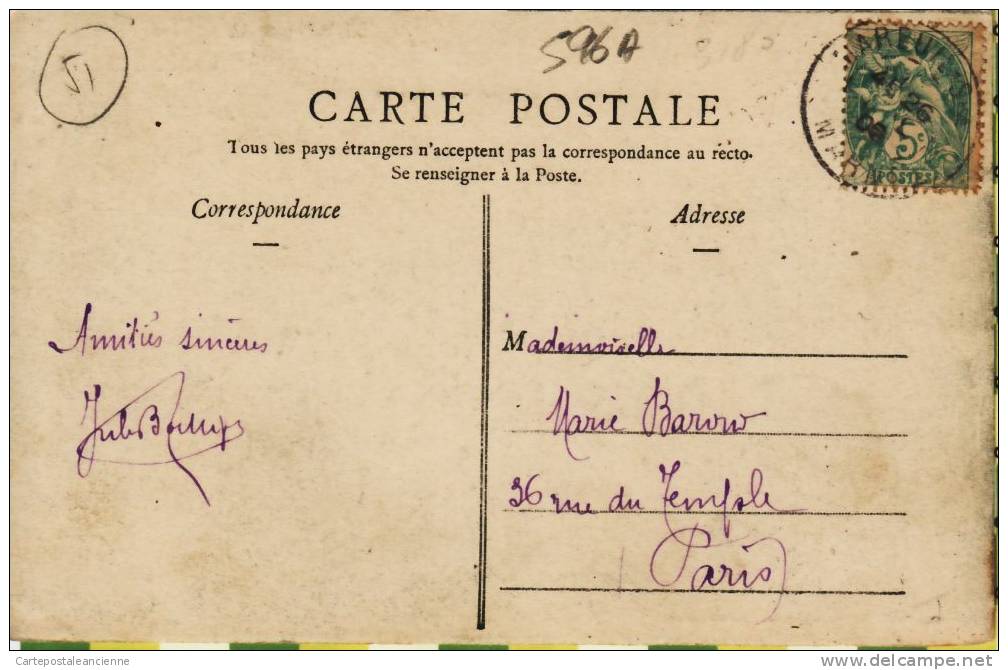 51
596A
CARTE POSTALE
Tous les pays étrangers n'acceptent pas la correspondance au recto.
Se renseigner à la Poste.
Correspondance
Adresse
5c
POSTES
Amitiés sincères
Jules
Mademoiselle
Marie
36 rue du Temple
Paris
Cartepostaleancienne
delcampe.net